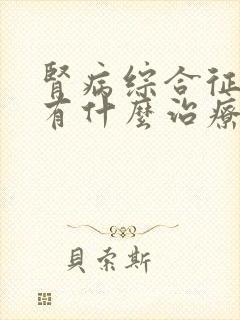 腎病综合征
有什麼治療
貝索斯